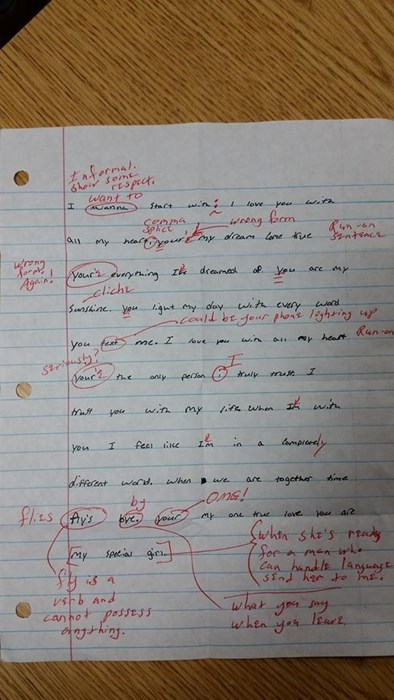 Informal.
Show some
respect.
want to
I wanna start with: I love you with
comma
splice
wrong form
all my heart, your my dream come true
Run-on
sentence
Wrong
form.
Again!
your everything I dreamed of you are my
cliche
sunshine you light my day with every word
could be your phone lighting up
you text me. I love you with all my heart
Run-on
seriously?
your the only person i truly trust I
I
trust you with my life when Im with
you I feel like Im in a completely
different world. when we are together time
flies
by
OMG!
fly's bye. your my one true love you are
[my special girl.]
fly is a
verb and
cannot possess
anything.
When she's ready
for a man who
can handle language
send her to me.
what you say
when you leave